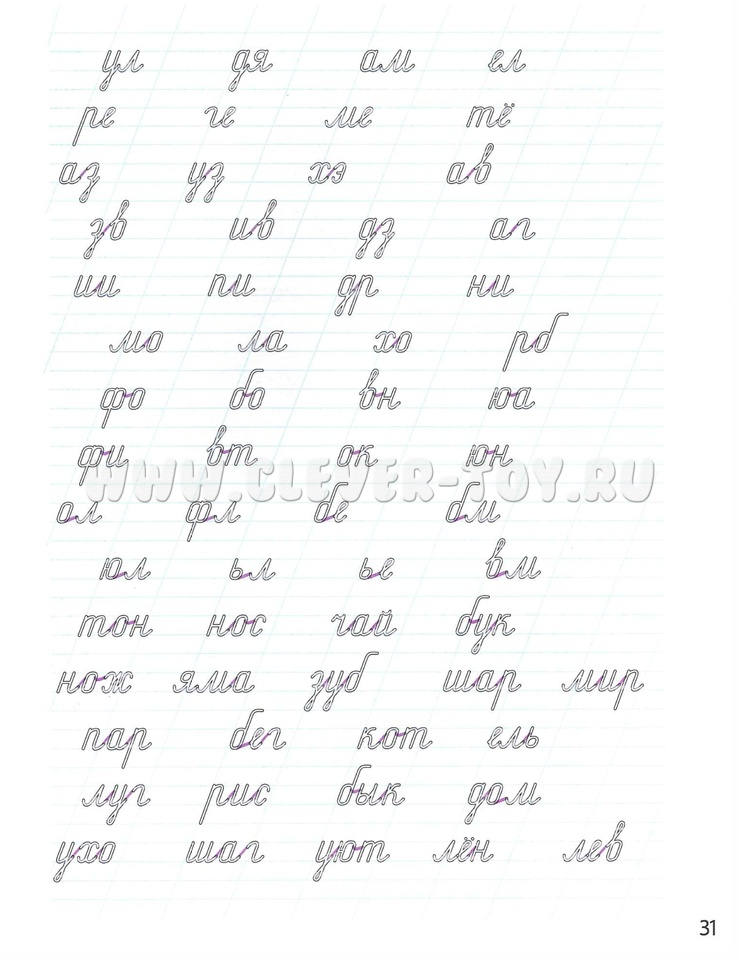 ул дя ам ел
ре ге ме тё
аз уз хэ ав
зв ив дз аг
ши пи др ни
мо ла хо рб
фо бо вн юа
фи вт ок юн
WWW.CLEVER-TOY.RU
ол фл бе бм
юл ьл ье вм
тон нос чай бук
нож яма зуб шар мир
пар бег кот ель
луг рис бык дом
ухо шаг уют лён лев
31